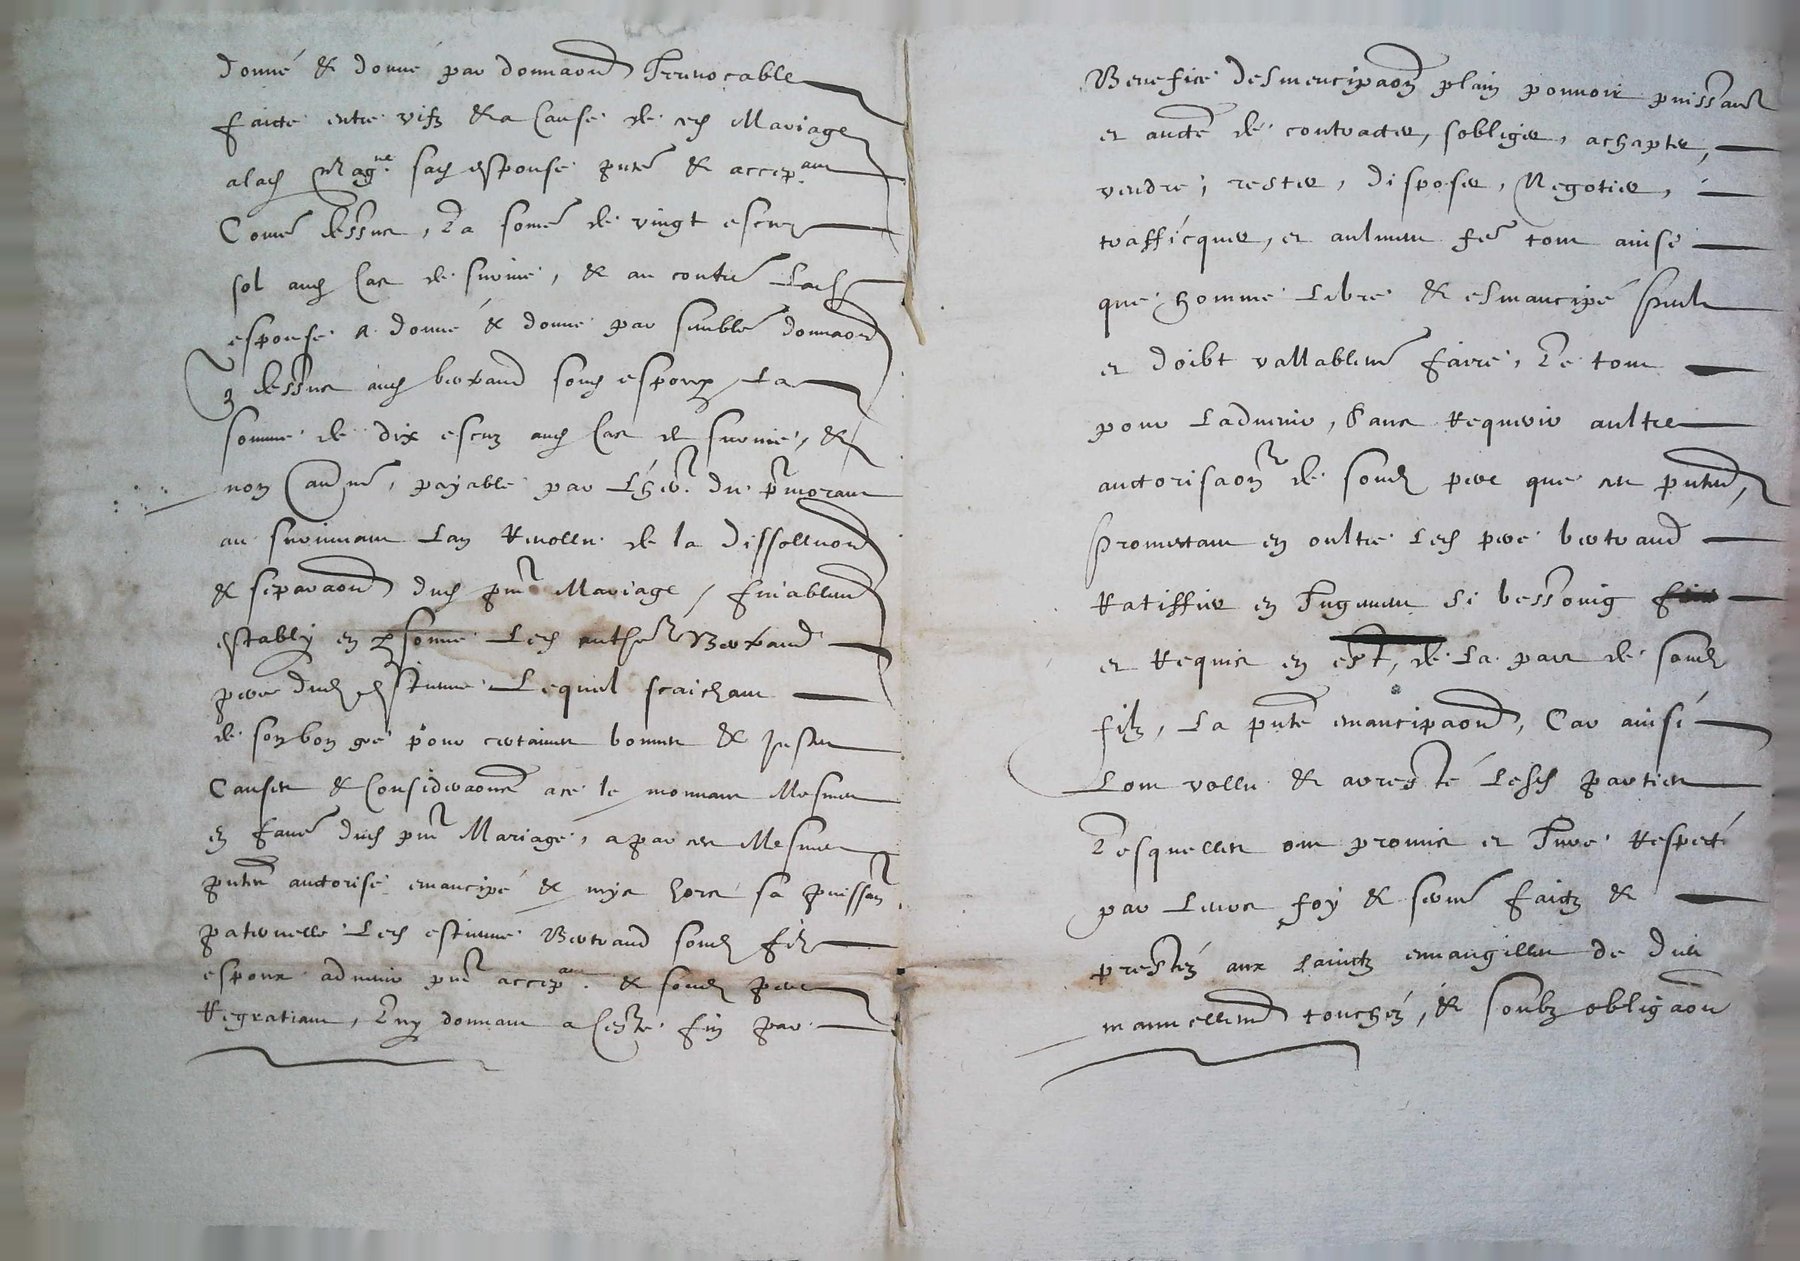 donné & donne par donnaon Irrevocable
faicte entre vifz & a cause de ced Mariage
alad Mag.ne sad espouse pnte & accep.ant
Come dessus, La some de vingt escuz
sol aud cas de survie, & au contre Lad
espouse a donné & donne par semble donnaon
q dessus aud bertrand soud espoux La
somme de dix escuz aud cas de survie, &
non aument, payable par L her. du pr morant
au survivant Lan Revollu de la dissolluon
& separaon dud pnt Mariage / finablemt
estably en psonne Led auther Bertrand
pere dud estienne Lequel scaichant
de son bon gré pour certaines bonnes & justes
Causes & Considéraons ace le mouvant Mesmes
en faver dud pnt Mariage, a par ces Mesmes
pntes auctorise emancipé & mys hors sa puissan
paternelle Led estienne Bertrand soud filz
espoux advenir pnt accep.ant & soud pere
Regratiant, Luy donnant a Ceste fin par
Benefice desmencipaon plain pouvoir puissance
et aucte de contracter, sobliger, achapter,
vendre, rester, disposer, Negotier,
trafficquer, et aultremt fe tout ainsi
que homme Libre & esmancipé peult
et doibt vallablemt faire, Le tout
pour Ladvenir, Sans Requerir aultre
auctorisaon de soud pere que ces pntes,
Promectant en oultre Led pere bertrand
Ratiffier en Jugement Si bessoing
et Requis en est, de La part de soud
filz, La pnte emancipaon, Car ainsi
Lont vollu & arresté Lesd parties
Lesquelles ont promis et Jure Respecte
par Leurs foy & sermt faictz &
prestéz aux sainctz evvangilles de dieu
manuellemt touchéz, & soubz obligaon